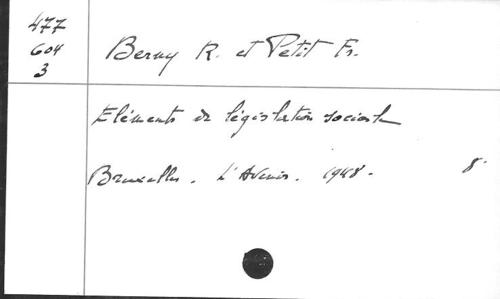 477
604
3
Berny R. et Petit Fr.
Eléments de législation sociale
Bruxelles. L'Avenir. 1948.
8°